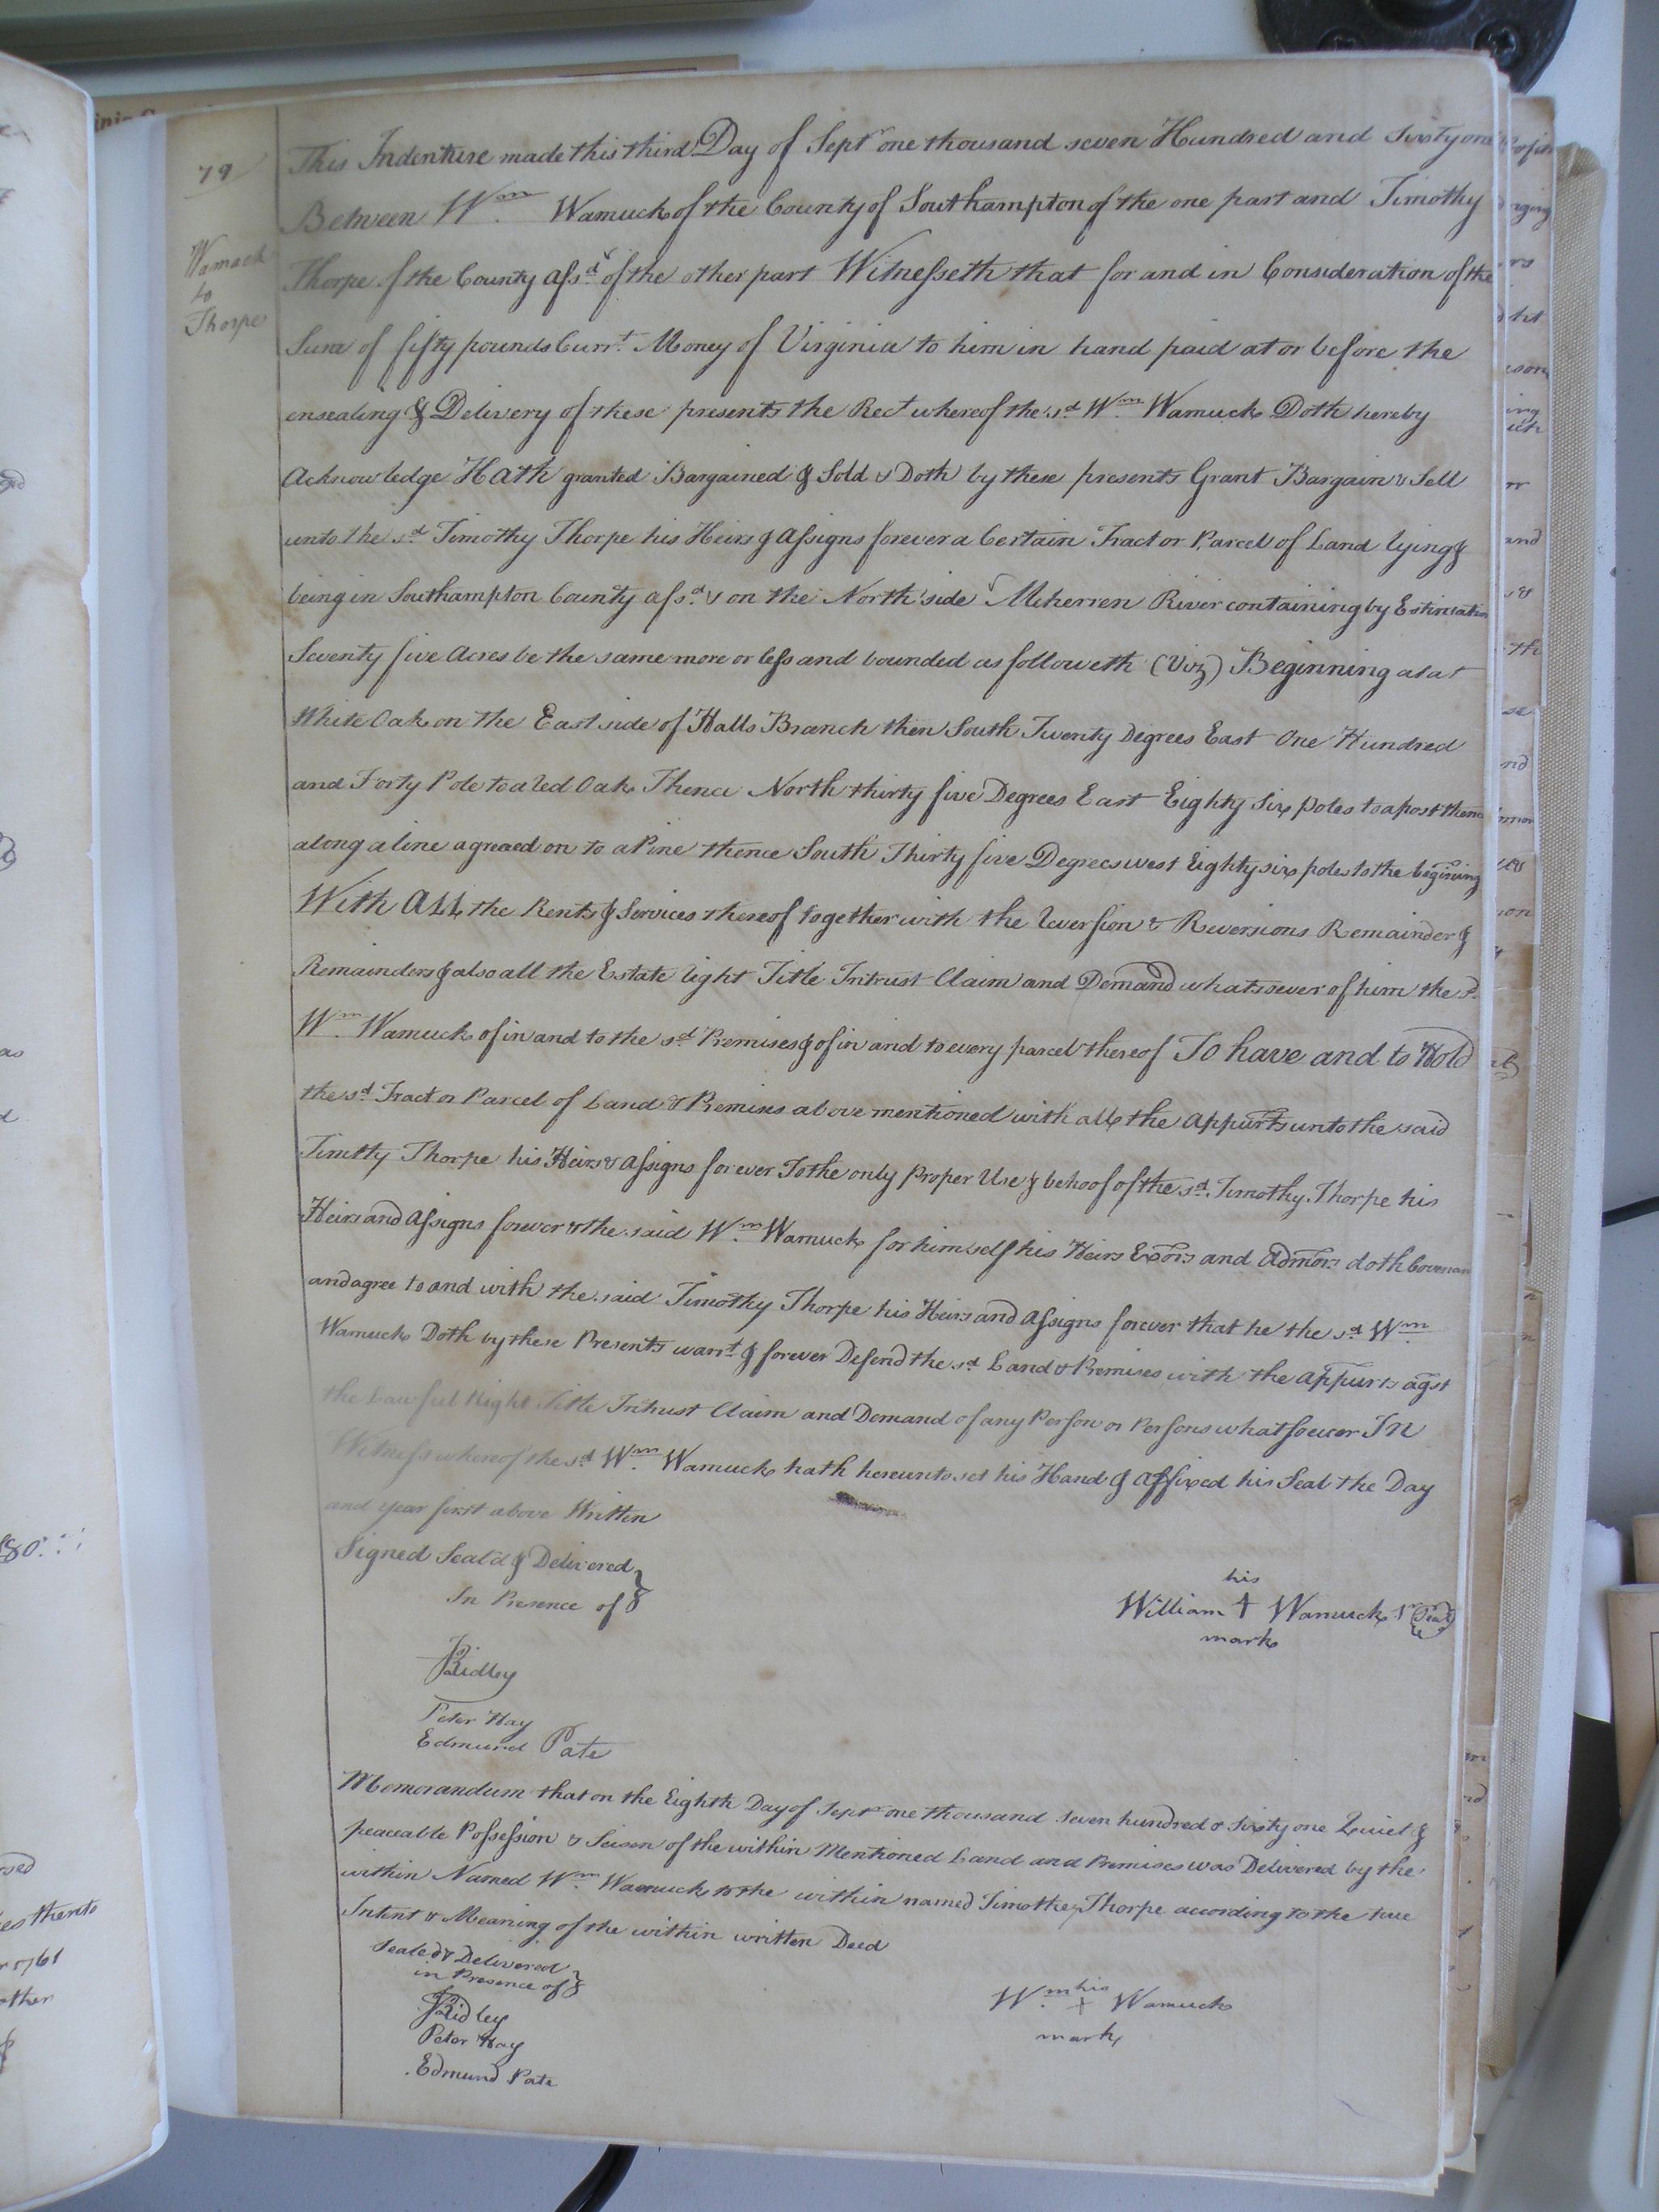 79
Wamack
to
Thorpe
This Indenture made this third Day of Sept.r one thousand seven Hundred and Sixty one
Between Wm. Wamuck of the County of Southampton of the one part and Timothy
Thorpe of the County afsd. of the other part Witnesseth that for and in Consideration of the
Sum of fifty pounds Curr.t Money of Virginia to him in hand paid at or before the
ensealing & Delivery of these presents the Rect whereof the sd Wm. Wamuck Doth hereby
Acknowledge Hath granted Bargained & Sold & Doth by these presents Grant Bargain & Sell
unto the sd. Timothy Thorpe his Heirs & Assigns forever a Certain Tract or Parcel of Land lying &
being in Southampton County afsd. & on the North side Meherren River containing by Estimation
Seventy five Acres be the same more or less and bounded as followeth (Viz) Beginning at a
White Oak on the East side of Halls Branch then South Twenty Degrees East One Hundred
and Forty Pole to a Red Oak Thence North thirty five Degrees East Eighty Six poles to a post thence
along a line agreed on to a Pine thence South Thirty five Degrees west Eighty six poles to the begining
With All the Rents & Services thereof together with the Reversion & Reversions Remainder &
Remainders & also all the Estate Right Title Intrust Claim and Demand whatsoever of him the sd.
Wm. Wamuck of in and to the sd. Premises & of in and to every parcel thereof To have and to Hold
the sd. Tract or Parcel of Land & Premises above mentioned with all the Appurts unto the said
Timothy Thorpe his Heirs & Assigns forever To the only Proper Use & behoof of the sd. Timothy Thorpe his
Heirs and Assigns forever & the said Wm. Wamuck for himself his Heirs Exors and Admors doth Covenant
and agree to and with the said Timothy Thorpe his Heirs and Assigns forever that he the sd Wm
Wamuck Doth by these Presents warrt. & forever Defend the sd Land & Premises with the Appurts agst
the Lawful Right Title Intrust Claim and Demand of any Person or Persons whatsoever In
Witness whereof the sd Wm. Wamuck hath hereunto set his Hand & affixed his Seal the Day
and year first above Written
Signed Seal'd & Delivered
In Presence of
his
William + Wamuck Sr Seal
mark
JRidley
Peter Hay
Edmund Pate
Memorandum that on the Eighth Day of Sept.r one thousand Seven hundred & Sixty one Quiet &
peaceable Possession & Seisen of the within Mentioned Land and Premises was Delivered by the
within Named Wm. Wamuck to the within named Timothey Thorpe according to the true
Intent & Meaning of the within written Deed
Sealed & Delivered
in Presence of
his
Wm. + Wamuck
mark
JRidley
Peter Hay
Edmund Pate